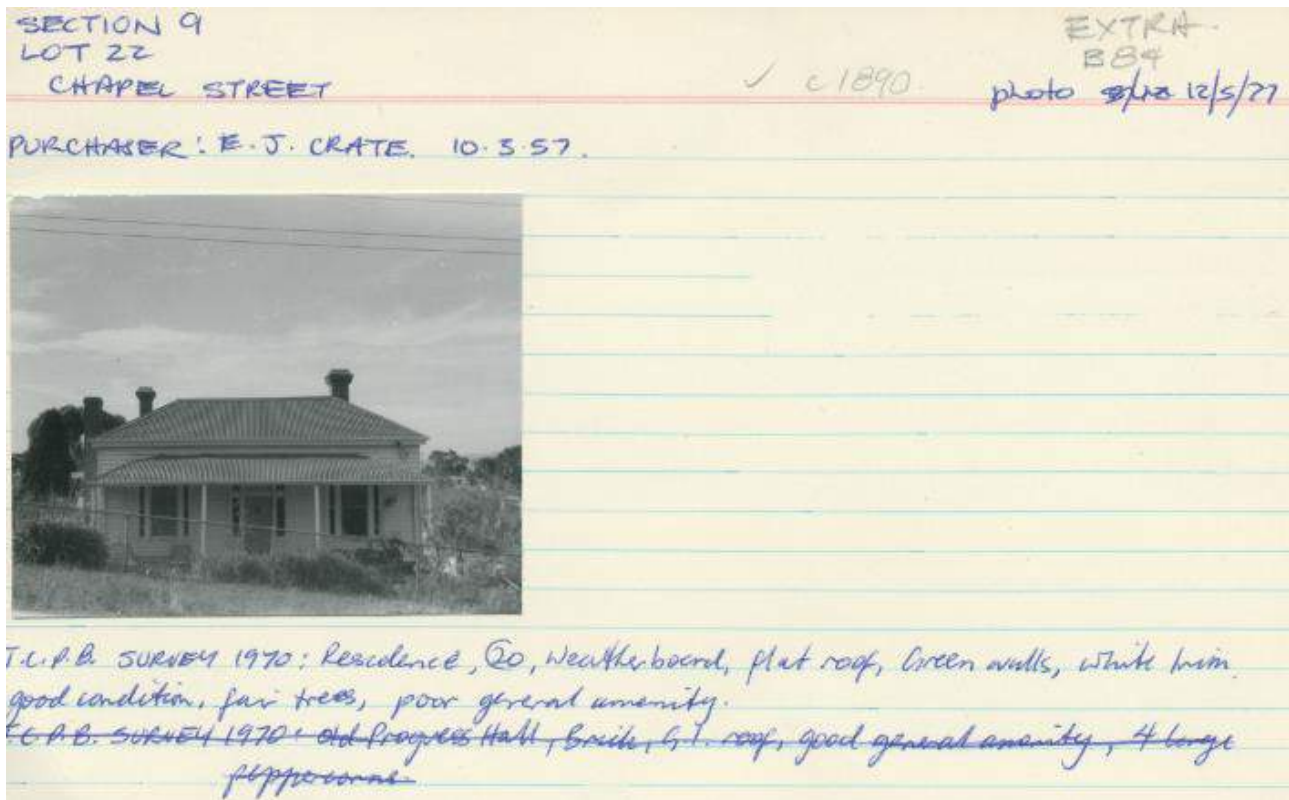 SECTION 9
LOT 22
CHAPEL STREET
EXTRA.
B84
✓ c1890.
photo 12/5/77
PURCHASER: E. J. CRATE. 10.3.57.
T.C.P.B. SURVEY 1970: Residence, 20, Weatherboard, flat roof, Green walls, white trim.
good condition, fair trees, poor general amenity.
T.C.P.B. SURVEY 1970: Old Progress Hall, Brick, G.I. roof, good general amenity, 4 large
peppercorns.